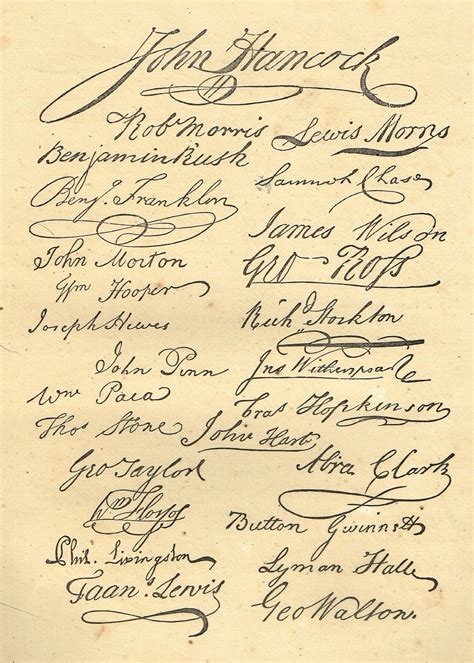 John Hancock
Robt Morris
Lewis Morris
Benjamin Rush
Benj. Franklin
Samuel Chase
James Wilson
John Morton
Geo Ross
Wm Hooper
Joseph Hewes
Richd Stockton
John Penn
Jno Witherspoon
Wm Paca
Fras Hopkinson
Thos Stone
John Hart
Geo Taylor
Abra Clark
Wm Floyd
Button Gwinnett
Phil. Livingston
Lyman Hall
Fran. Lewis
Geo Walton.